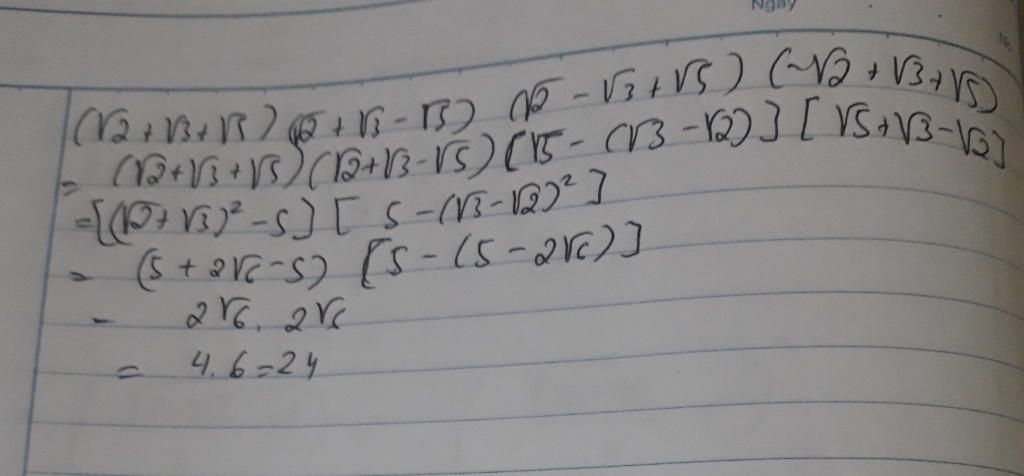 Ngày
No.
(√2 + √3 + √5) (√2 + √3 - √5) (√2 - √3 + √5) (-√2 + √3 + √5)
= (√2 + √3 + √5) (√2 + √3 - √5) [√5 - (√3 - √2)] [√5 + √3 - √2]
= [(√2 + √3)² - 5] [5 - (√3 - √2)²]
= (5 + 2√6 - 5) [5 - (5 - 2√6)]
= 2√6. 2√6
= 4.6 = 24